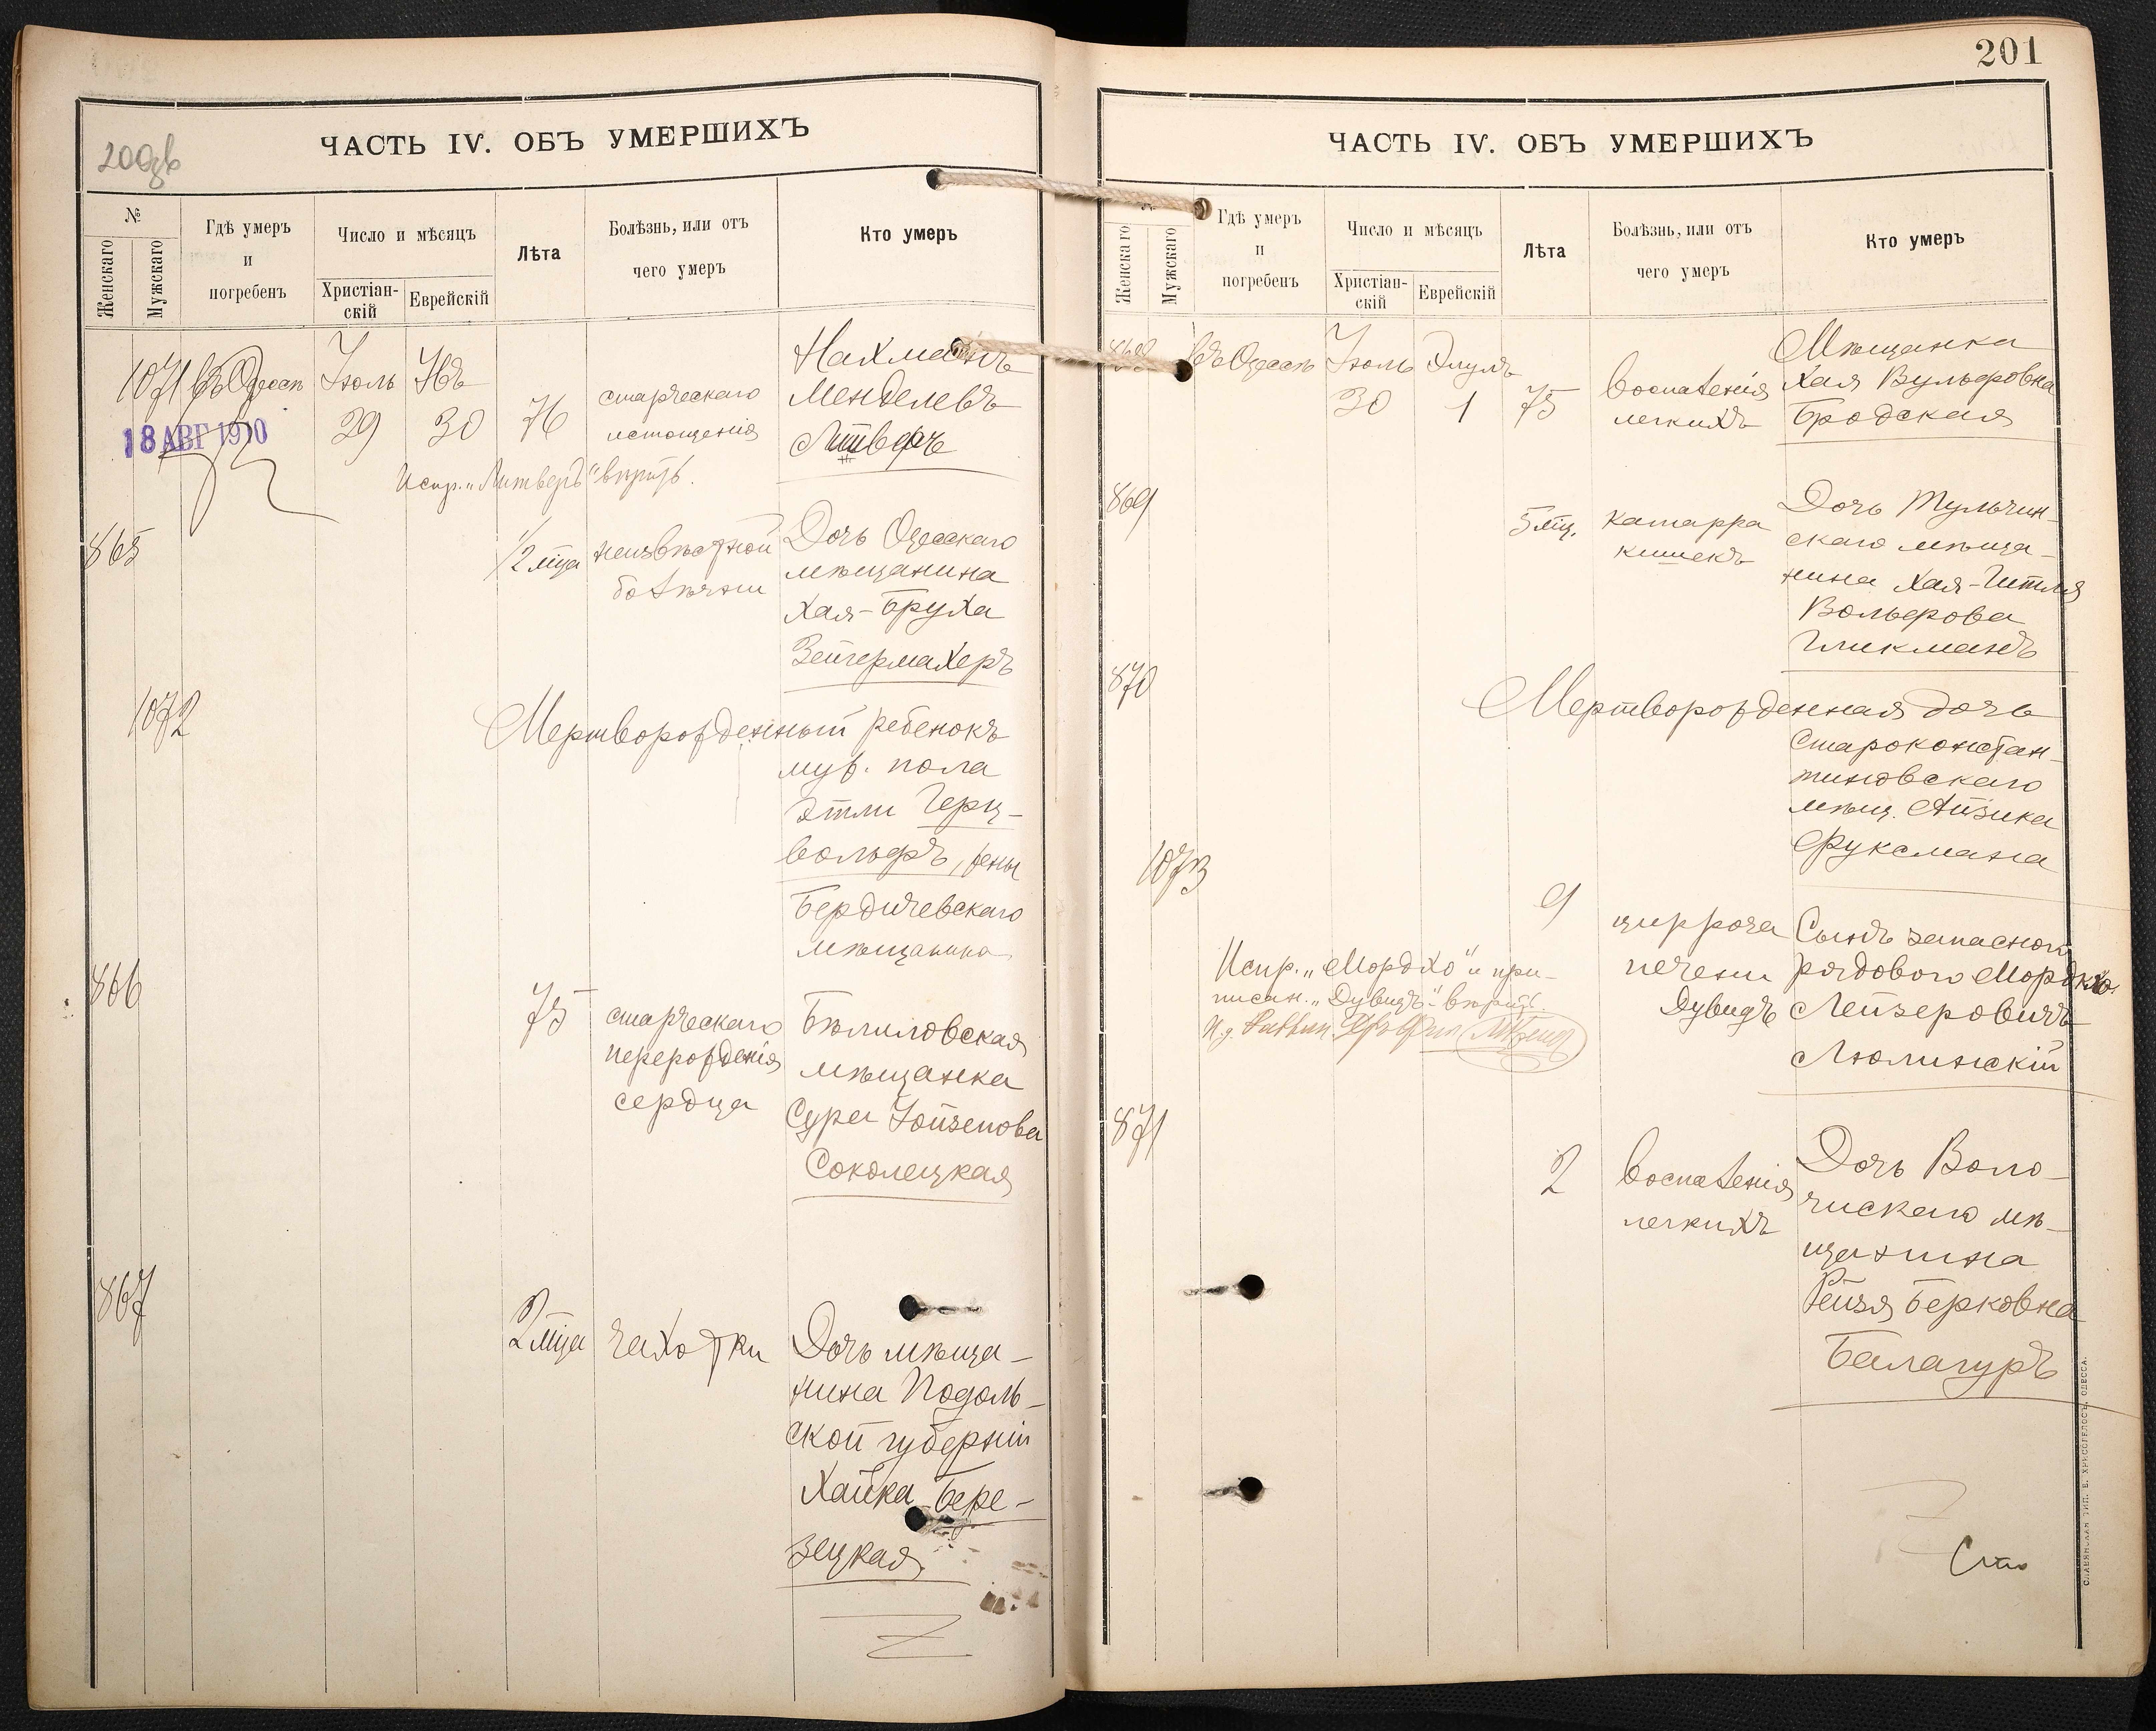 200об
ЧАСТЬ IV. ОБЪ УМЕРШИХЪ
№
Женскаго
Мужскаго
Гдѣ умеръ
и
погребенъ
Число и мѣсяцъ
Христіан-
скій
Еврейскій
Лѣта
Болѣзнь, или отъ
чего умеръ
Кто умеръ
1071 въ Одессѣ Іюль Абъ
29 30 76
старческаго
истощенія
Нахманъ
Менделевъ
Литверъ
18 АВГ 1910
Испр. „Литверъ“ вѣрить.
865
1/2 мца неизвѣстной
болѣзни
Дочь Одесскаго
мѣщанина
Хая-Бруха
Зейгермахеръ
1072
Мертворожденный ребенокъ
муж. пола
Этли Герц-
вольфъ, жены
Бердичевскаго
мѣщанина
866
75 старческаго
перерожденія
сердца
Бѣлиловская
мѣщанка
Сура Іойзепова
Соколецкая
867
2 мца чахотки
Дочь мѣща-
нина Подоль-
ской губерніи
Хайка Бере-
зецкая
201
ЧАСТЬ IV. ОБЪ УМЕРШИХЪ
№
Женскаго
Мужскаго
Гдѣ умеръ
и
погребенъ
Число и мѣсяцъ
Христіан-
скій
Еврейскій
Лѣта
Болѣзнь, или отъ
чего умеръ
Кто умеръ
868 въ Одессѣ Іюль Элулъ
30 1 75
воспаленія
легкихъ
Мѣщанка
Хая Вульфовна
Бродская
869
5 мц. катарра
кишекъ
Дочь Тульчин-
скаго мѣща-
нина Хая-Гитля
Вольфова
Гликманъ
870
Мертворожденная дочь
Староконстан-
тиновскаго
мѣщ. Айзика
Фуксмана
1073
9 цирроза
печени
Сынъ запасного
рядового Мордко-
Дувидъ Лейзеровичъ
Люлинскій
Испр. „Мордко“ и при-
писан. „Дувидъ“ вѣрить.
И. д. Раввин.
871
2 воспаленія
легкихъ
Дочь Воло-
чискаго мѣ-
щанина
Рейзя Берковна
Балагуръ
СЛАВЯНСКАЯ ТИП. Е. ХРИСОГЕЛОСЪ, ОДЕССА.